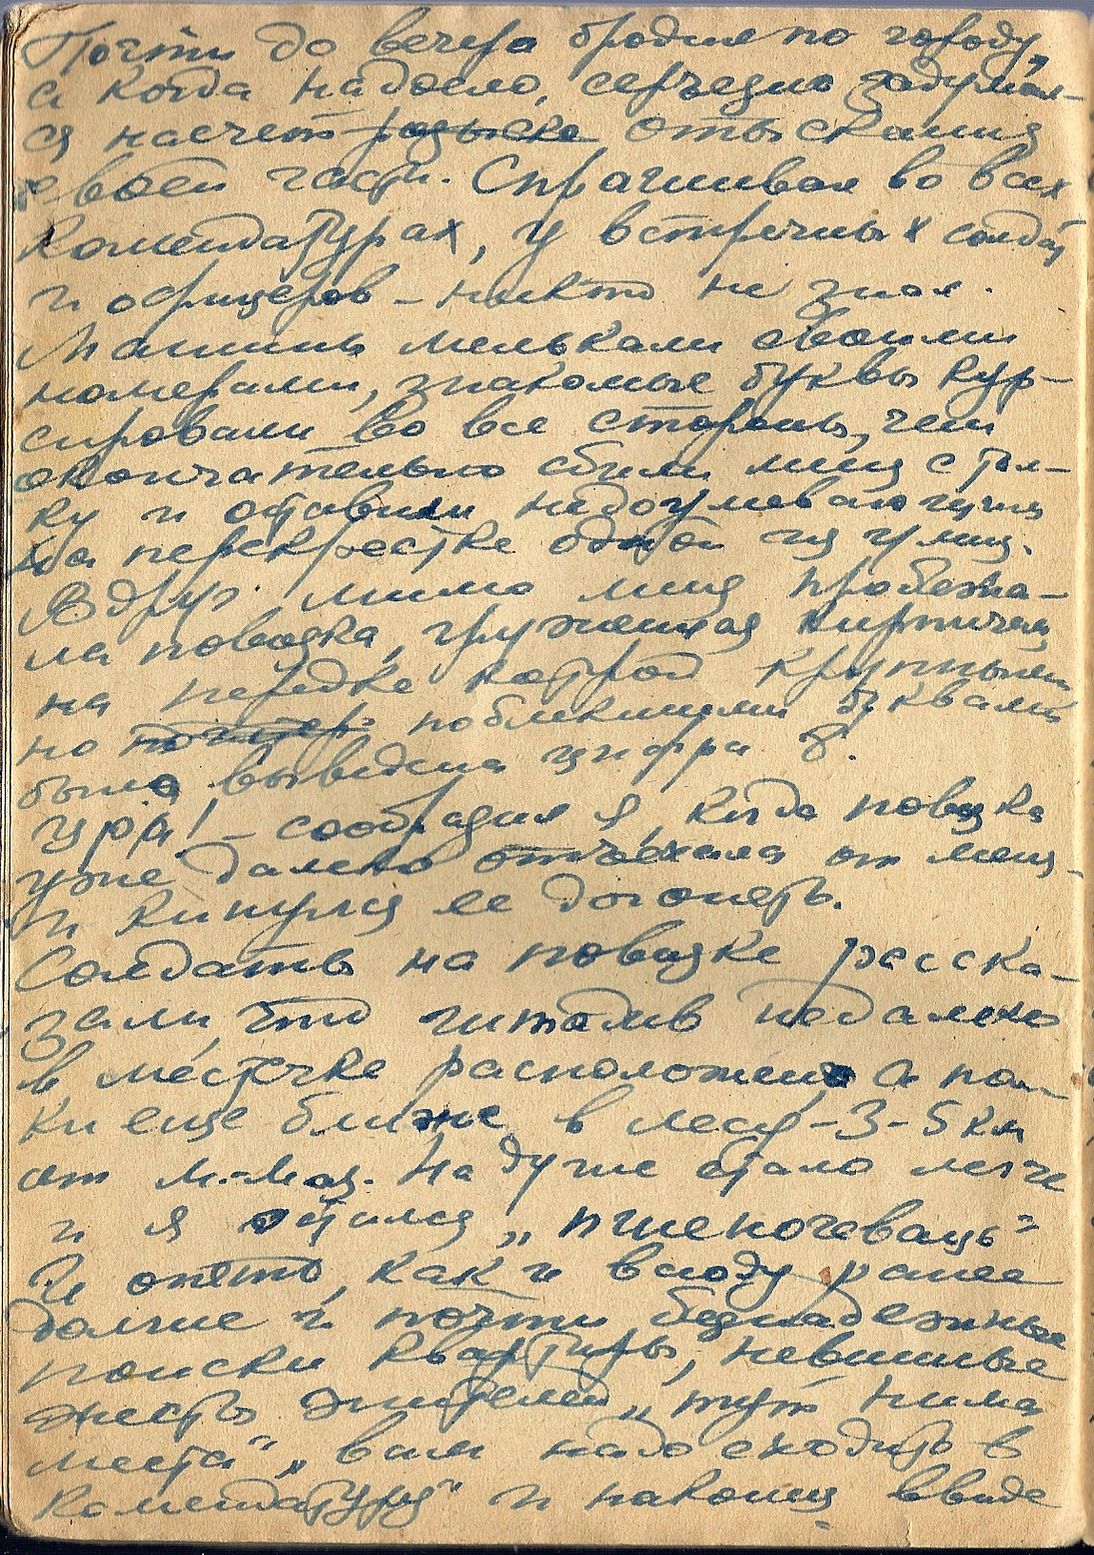 Почти до вечера бродил по городу,
а когда надоело, серьезно задумал-
ся насчет розыска отыскания
своей части. Спрашивал во всех
комендатурах, у встречных солдат
и офицеров – никто не знал.
Машины мелькали своими
номерами, знакомые буквы кур-
сировали во все стороны, чем
окончательно сбили меня с тол-
ку и оставили недоумевающим
на перекрестке одной из улиц.
Вдруг мимо меня пробежа-
ла повозка, груженная кирпичам
на передке которой крупными
но поблекшими буквами
была выведена цифра 8.
Ура! – сообразил я, когда повозка
уже далеко отъехала от меня
и кинулся ее догонять.
Солдаты на повозке расска-
зали, что штадив недалеко
в местечке расположен, а пол-
ки еще ближе в лесу – 3-5 км
от м.-Маз. На душе стало легче
и я остался „пшеночеваць"
И опять, как и всюду ранее
долгие и почти безнадежные
поиски квартиры, невинные
жесты жителей „тут нима
места", „вам надо сходить в
комендатуру" и наконец ввиде